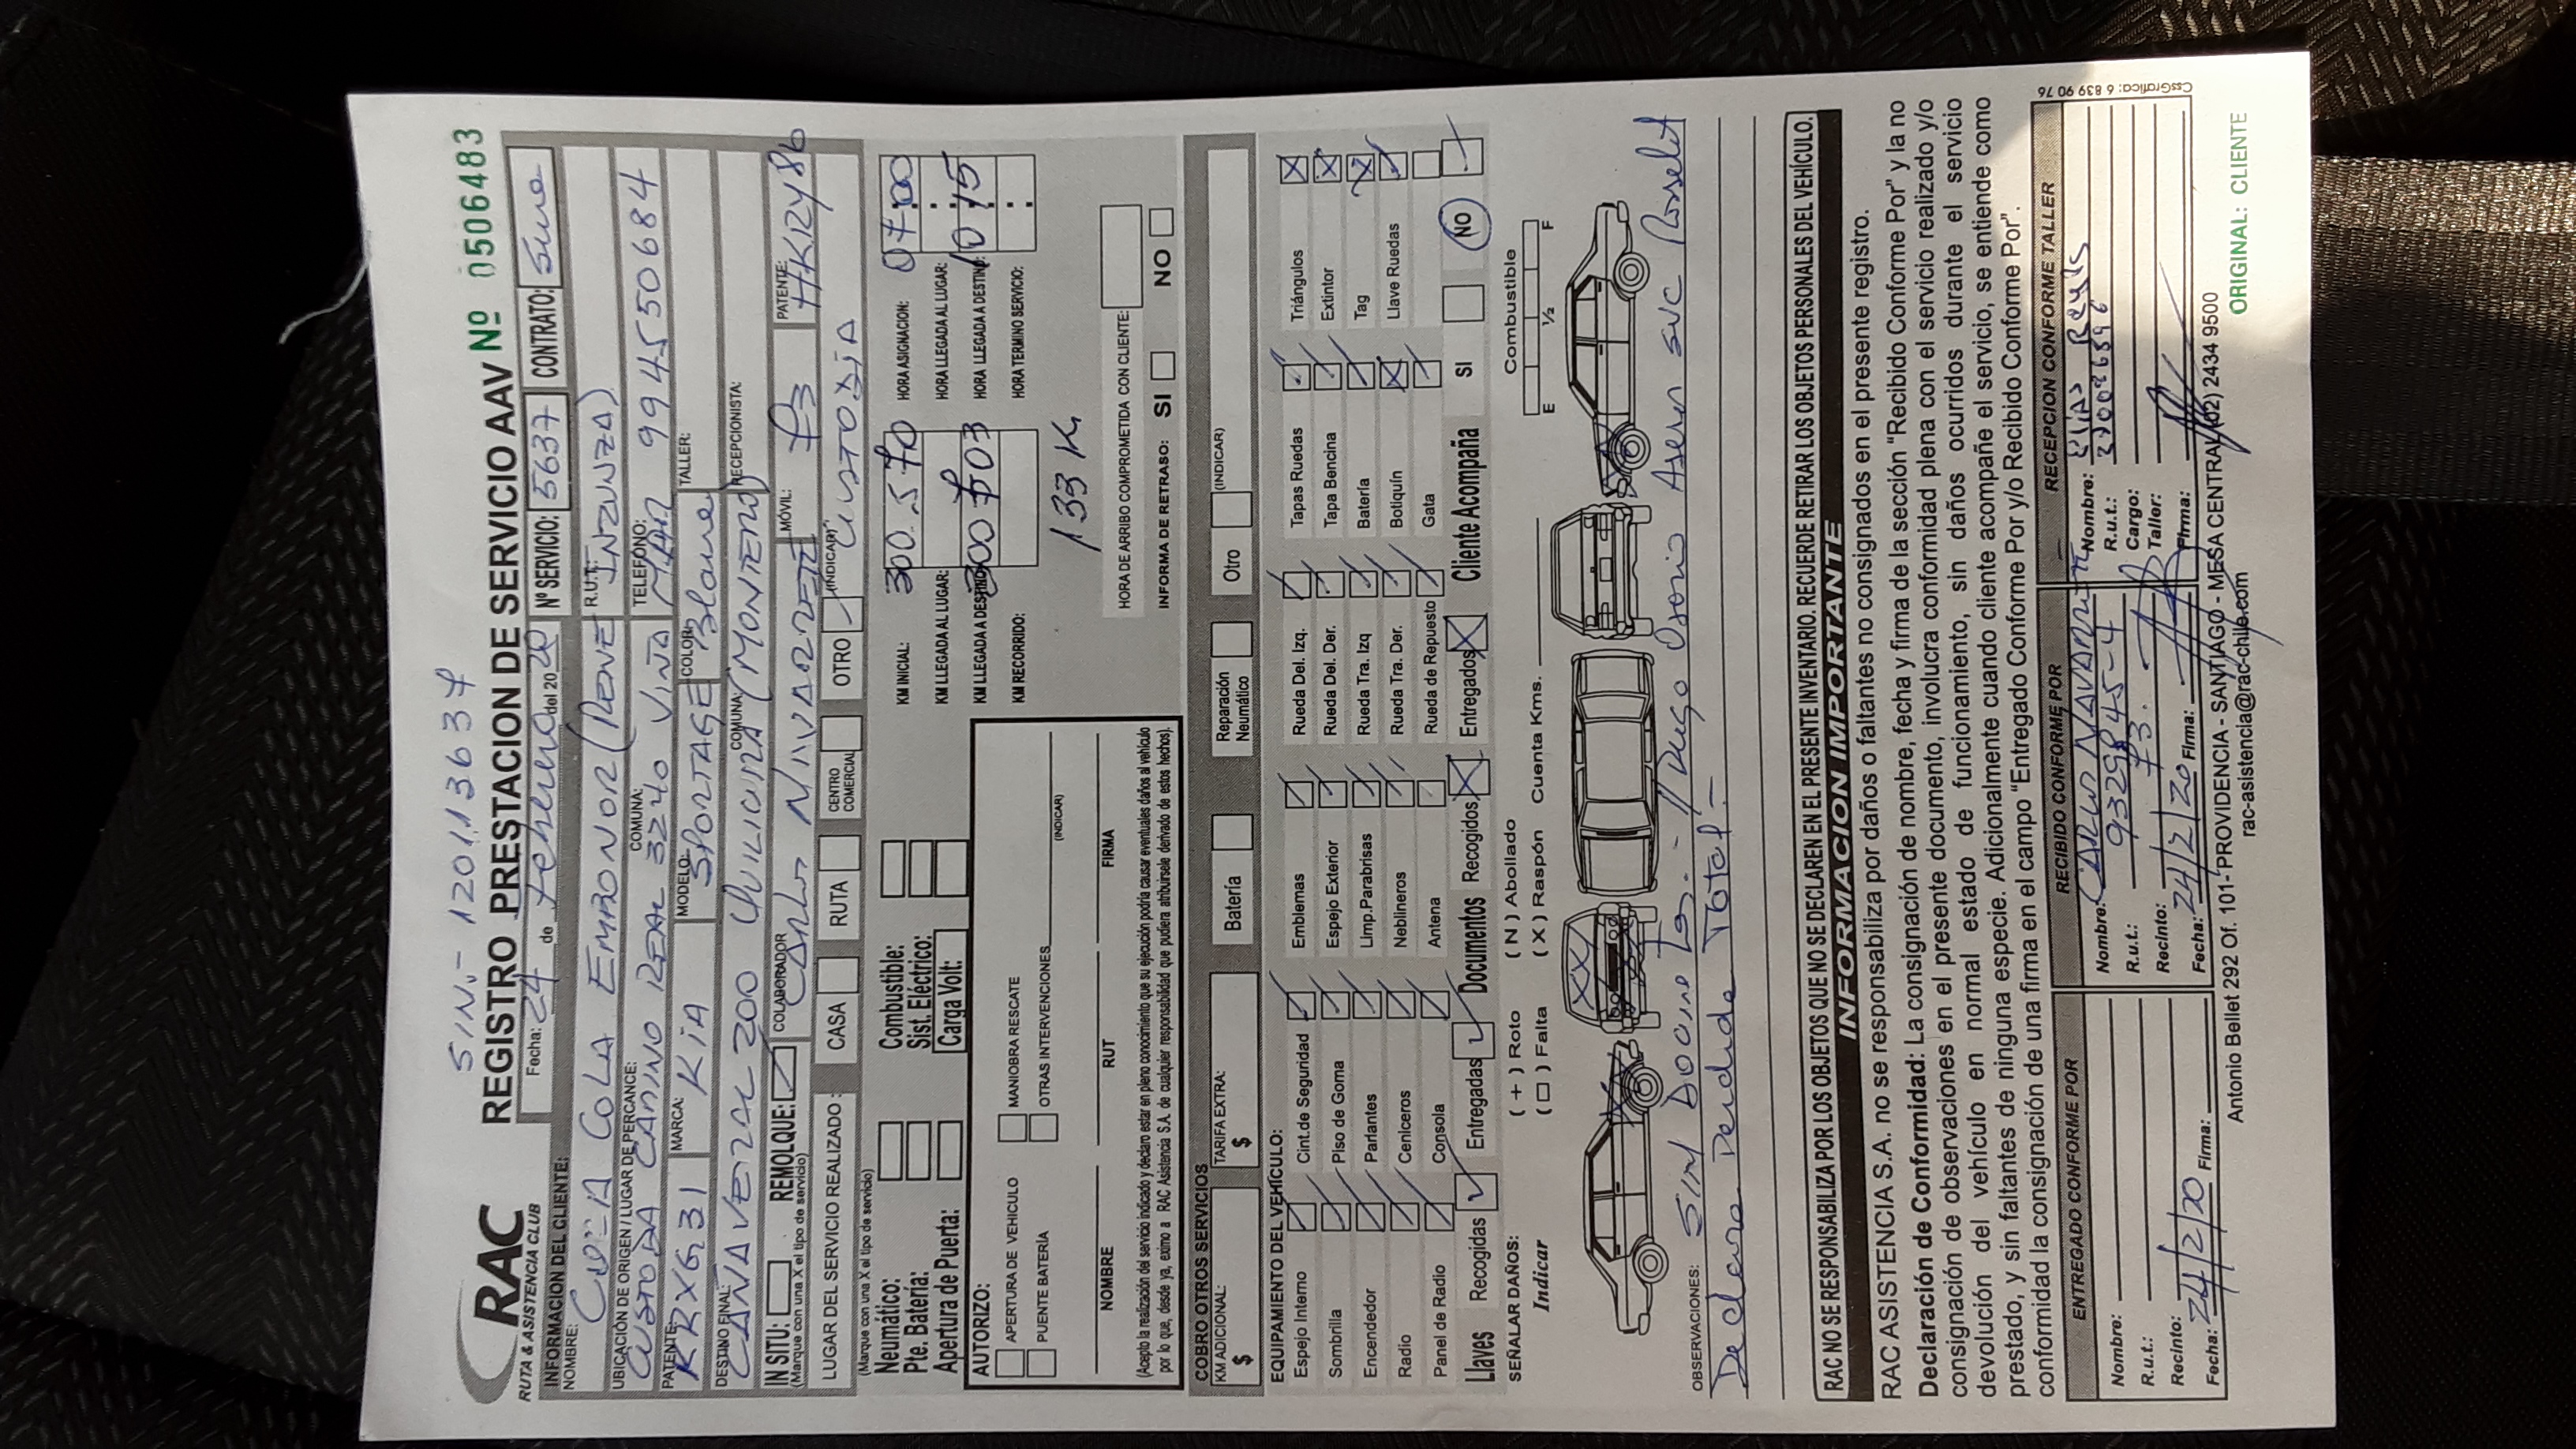 SIN.- 12011363 7
RAC
RUTA & ASISTENCIA CLUB
REGISTRO PRESTACION DE SERVICIO AAV Nº 0506483
Fecha: 24 de febrero del 2020 Nº SERVICIO: 5637 CONTRATO: Sura
INFORMACION DEL CLIENTE:
NOMBRE: COCA COLA EMBONOR (RENE INZUNZA) R.U.T.:
UBICACIÓN DE ORIGEN / LUGAR DE PERCANCE: CUSTODIA CAMINO REAL 3240 COMUNA: VIÑA MAR TELEFONO: 9945 50684
PATENTE: KRXG 31 MARCA: KIA MODELO: SPORTAGE COLOR: Blanco TALLER:
DESTINO FINAL: CAÑAVERAL 200 COMUNA: QUILICURA (MONTERO) RECEPCIONISTA:
IN SITU: REMOLQUE: COLABORADOR Carlos NAVARRETE MÓVIL: F3 PATENTE: HKRY86
(Marque con una X el tipo de servicio)
LUGAR DEL SERVICIO REALIZADO: CASA RUTA CENTRO COMERCIAL OTRO (INDICAR) CUSTODIA
(Marque con una X el tipo de servicio)
Neumático: Combustible: KM INICIAL: 300.570 HORA ASIGNACION: 07:00
Pte. Batería: Sist. Eléctrico: KM LLEGADA AL LUGAR: HORA LLEGADA AL LUGAR:
Apertura de Puerta: Carga Volt: KM LLEGADA A DESTINO: 300703 HORA LLEGADA A DESTINO: 1015
KM RECORRIDO: HORA TERMINO SERVICIO:
133 K
AUTORIZO:
APERTURA DE VEHICULO MANIOBRA RESCATE
PUENTE BATERÍA OTRAS INTERVENCIONES (INDICAR)
HORA DE ARRIBO COMPROMETIDA CON CLIENTE:
INFORMA DE RETRASO: SI NO
NOMBRE RUT FIRMA
(Acepto la realización del servicio indicado y declaro estar en pleno conocimiento que su ejecución podría causar eventuales daños al vehículo
por lo que, desde ya, eximo a RAC Asistencia S.A. de cualquier responsabilidad que pudiera atribuírsele derivado de estos hechos).
COBRO OTROS SERVICIOS
KM ADICIONAL: $ TARIFA EXTRA: $ Batería Reparación Neumático Otro (INDICAR)
EQUIPAMIENTO DEL VEHÍCULO:
Espejo Interno Cint.de Seguridad Emblemas Rueda Del. Izq. Tapas Ruedas Triángulos
Sombrilla Piso de Goma Espejo Exterior Rueda Del. Der. Tapa Bencina Extintor
Encendedor Parlantes Limp.Parabrisas Rueda Tra. Izq Batería Tag
Radio Ceniceros Neblineros Rueda Tra. Der. Botiquín Llave Ruedas
Panel de Radio Consola Antena Rueda de Repuesto Gata
Llaves Recogidas Entregadas Documentos Recogidos Entregados Cliente Acompaña SI NO
SEÑALAR DAÑOS: ( + ) Roto ( N ) Abollado Combustible
Indicar ( □ ) Falta ( X ) Raspón Cuenta Kms. E ½ F
XX
OBSERVACIONES: SIN Docume tos.- // Diego Osorio Asesor SVC
Declara Perdida Total.-
RAC NO SE RESPONSABILIZA POR LOS OBJETOS QUE NO SE DECLAREN EN EL PRESENTE INVENTARIO. RECUERDE RETIRAR LOS OBJETOS PERSONALES DEL VEHÍCULO.
INFORMACION IMPORTANTE
RAC ASISTENCIA S.A. no se responsabiliza por daños o faltantes no consignados en el presente registro.
Declaración de Conformidad: La consignación de nombre, fecha y firma de la sección "Recibido Conforme Por" y la no
consignación de observaciones en el presente documento, involucra conformidad plena con el servicio realizado y/o
devolución del vehículo en normal estado de funcionamiento, sin daños ocurridos durante el servicio
prestado, y sin faltantes de ninguna especie. Adicionalmente cuando cliente acompañe el servicio, se entiende como
conformidad la consignación de una firma en el campo "Entregado Conforme Por y/o Recibido Conforme Por".
ENTREGADO CONFORME POR
Nombre:
R.u.t.:
Recinto:
Fecha: 24/2/20 Firma:
RECIBIDO CONFORME POR
Nombre: CARLOS NAVARRETE
R.u.t.: 9329845-4
Recinto: F3.
Fecha: 24/2/20 Firma:
RECEPCION CONFORME TALLER
Nombre: Elias Reyes
R.u.t.:
Cargo:
Taller:
Firma:
CssGrafica: 6 839 90 76
Antonio Bellet 292 Of. 101- PROVIDENCIA - SANTIAGO - MESA CENTRAL (02) 2434 9500
rac-asistencia@rac-chile.com
ORIGINAL: CLIENTE